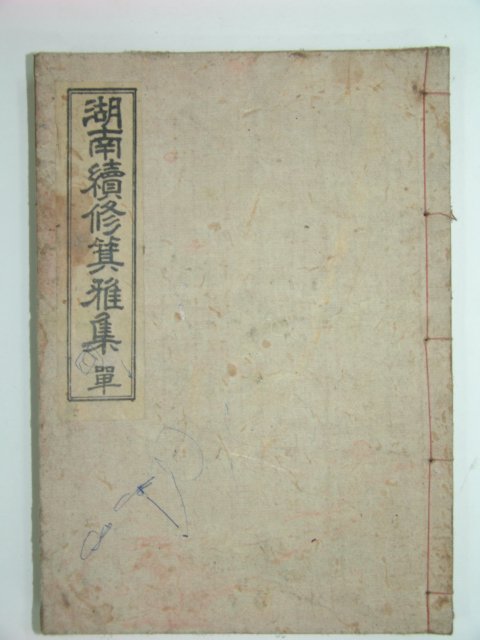 湖南續修箕雅集 單